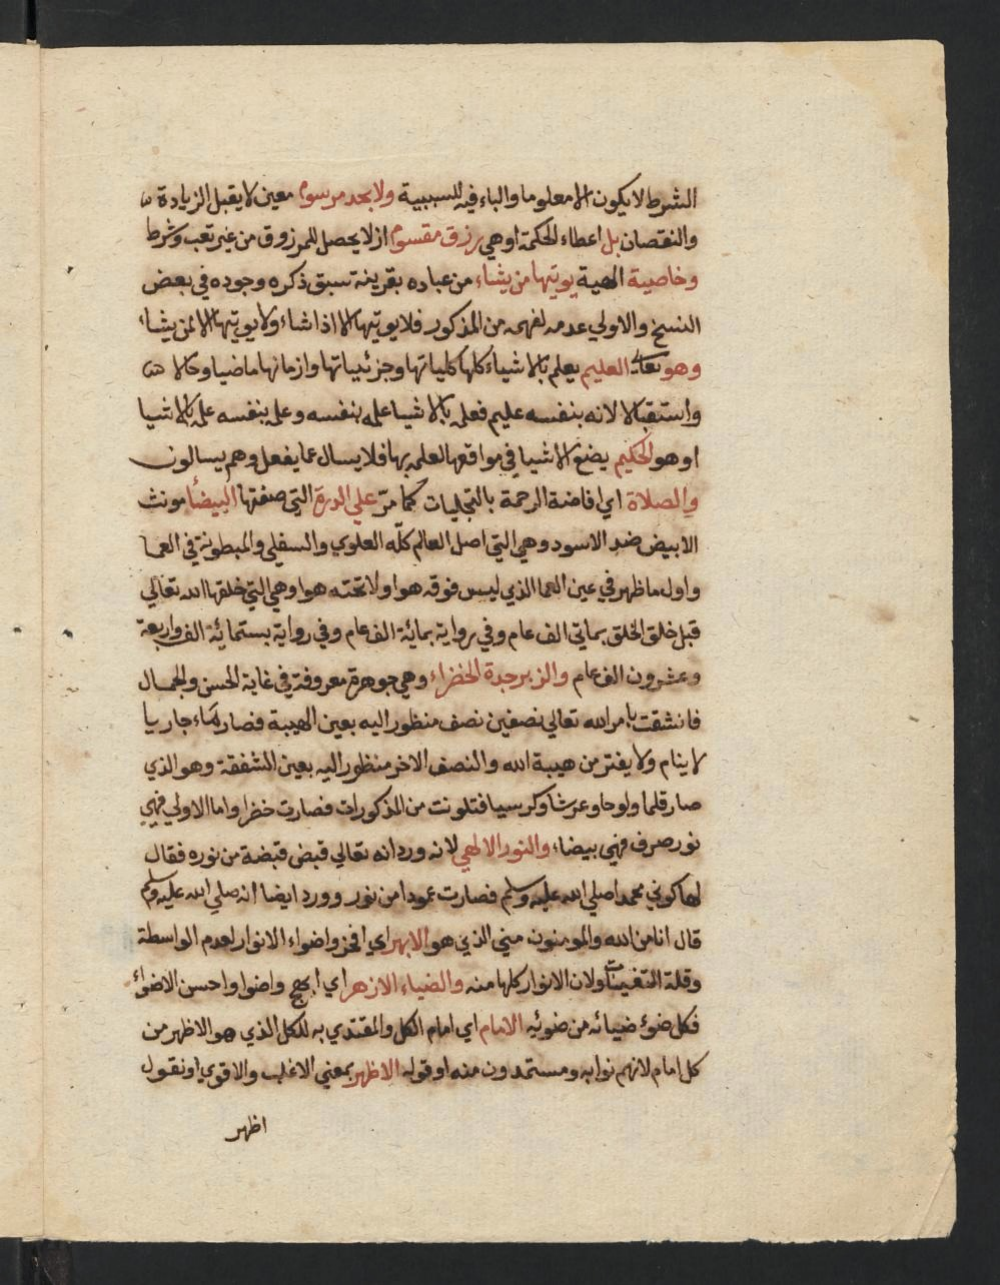 الشرط لا يكون الا معلوما والباء فيه للسببية ولا بحد مرسوم معين لا يقبل الزيادة
والنقصان بل اعطاء الحكمة او هي رزق مقسوم ازلا يحصل للمرزوق من غير تعب وشرط
وخاصية الهية يوتيها من يشاء من عباده بقرينة سبق ذكره وجوده في بعض
النسخ والاولي عدمه لفهمه من المذكور فلا يوتيها الا اذا شاء ولا يوتيها الا لمن يشاء
وهو تعالى العليم يعلم بالاشياء كلها كلياتها وجزئياتها وازمانها ماضيا وحالا
واستقبالا لانه بنفسه عليم فعلمه بالاشيا علمه بنفسه وعلمه بنفسه علمه بالاشيا
او هو الحكيم يضع الاشيا في مواقعها لعلمه بها فلا يسال عما يفعل وهم يسالون
والصلاة اي افاضة الرحمة بالتجليات كما مرّ علي الدرة التي صفتها البيضا مونث
الابيض ضد الاسود وهي التي اصل العالم كلّه العلوي والسفلي والمبطونة في العما
واول ما ظهر في عين العما الذي ليس فوقه هوا ولا تحته هوا وهي التي خلقها الله تعالي
قبل خلق الخلق بماتي الف عام وفي رواية بمائة الف عام وفي رواية بستمائة الف واربعة
وعشرون الف عام والزبرجدة الخضراء وهي جوهرة معروفة في غاية الحسن والجمال
فانشقت بامر الله تعالي نصفين نصف منظور اليه بعين الهيبة فصار ماء جاريا
لا ينام ولا يفتر من هيبة الله والنصف الاخر منظور اليه بعين الشفقة وهو الذي
صار قلما ولوحا وعرشا وكرسيا فتلونت من المذكورات فصارت خضرا واما الاولي فهي
نور صرف فهي بيضاء والنور الالهي لانه ورد انه تعالي قبض قبضة من نوره فقال
لها كوني محمدا صلي الله عليه وسلم فصارت عمودا من نور وورد ايضا انه صلي الله عليه وسلم
قال انا من الله والمومنون مني الذي هو الابهر اي افخر واضواء الانوار لعدم الواسطة
وقلة التعينات ولان الانوار كلها منه والضياء الازهر اي ابهج واضوا واحسن الاضواء
فكل ضوء ضيائه من ضوئه الامام اي امام الكل والمقتدي به للكل الذي هو الاظهر من
كل امام لانهم نوابه ومستمدون منه او قوله الاظهر بمعني الاغلب والاقوي او نقول
اظهر